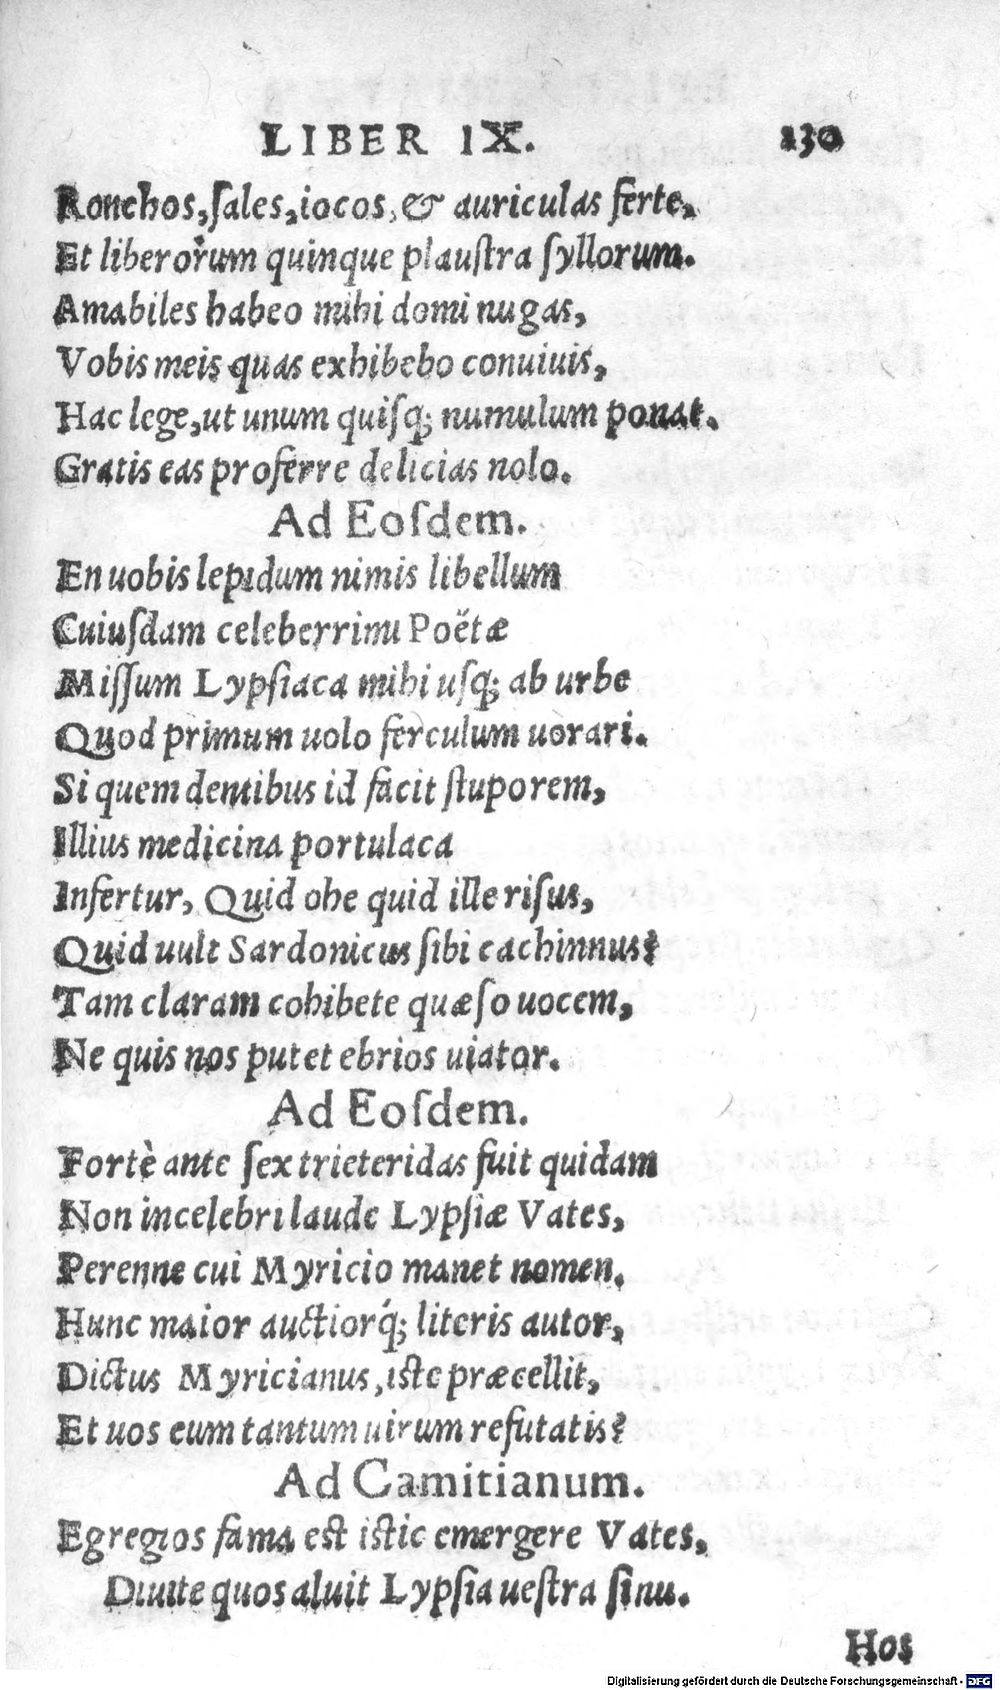 LIBER IX. 130
Ronchos, ſales, iocos, & auriculas ferte,
Et liberorum quinque plauſtra ſyllorum.
Amabiles habeo mihi domi nugas,
Vobis meis quas exhibebo conuiuis,
Hac lege, ut unum quiſq; numulum ponat.
Gratis eas proferre delicias nolo.
Ad Eoſdem.
En uobis lepidum nimis libellum
Cuiuſdam celeberrimi Poëtæ
Miſſum Lypſiaca mihi uſq; ab urbe
Quod primum uolo ferculum uorari.
Si quem dentibus id facit ſtuporem,
Illius medicina portulaca
Infertur, Quid ohe quid ille riſus,
Quid uult Sardonicus ſibi cachinnus?
Tam claram cohibete quæſo uocem,
Ne quis nos putet ebrios uiator.
Ad Eoſdem.
Fortè ante ſex trieteridas fuit quidam
Non incelebri laude Lypſiæ Vates,
Perenne cui Myricio manet nomen.
Hunc maior auctiorq́; literis autor,
Dictus Myricianus, iſte præcellit,
Et uos eum tantum uirum refutatis?
Ad Camitianum.
Egregios fama eſt iſtic emergere Vates,
Diuite quos aluit Lypſia ueſtra ſinu.
Hos
Digitalisierung gefördert durch die Deutsche Forschungsgemeinschaft - DFG